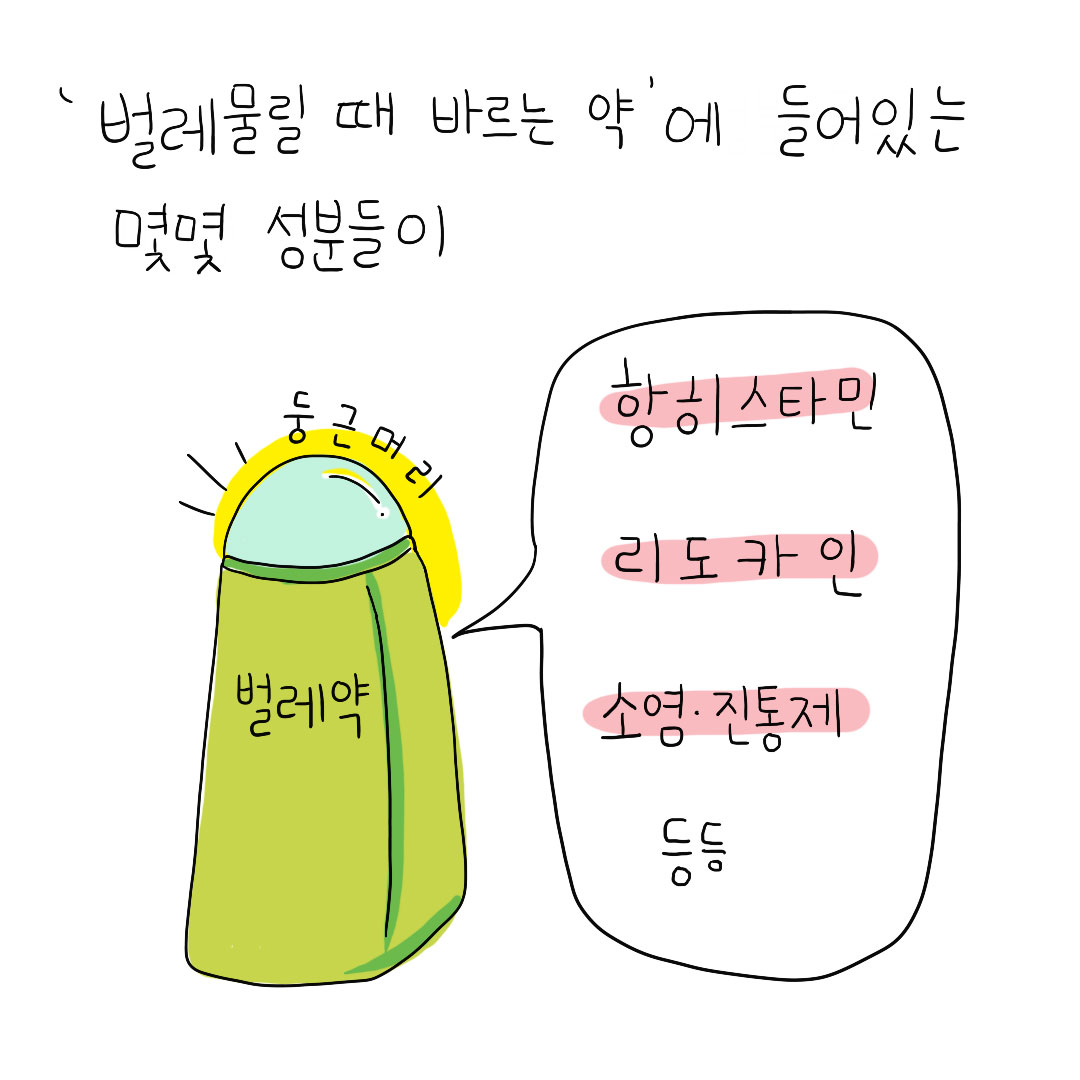 ‘벌레물릴 때 바르는 약’에 들어있는
몇몇 성분들이
둥근머리
벌레약
항히스타민
리도카인
소염·진통제
등등